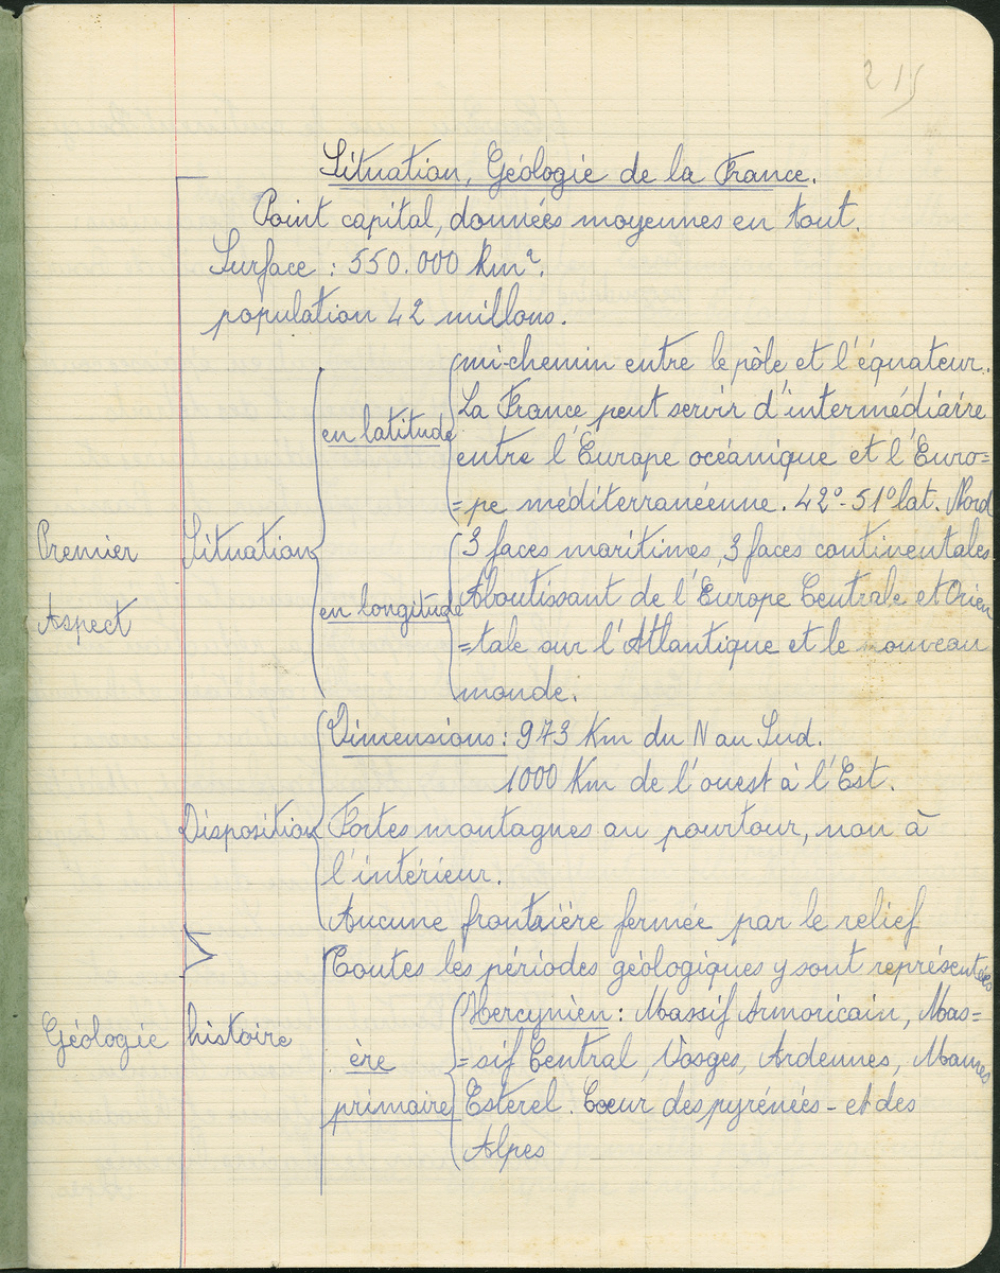 215
Situation, Géologie de la France.
Point capital, données moyennes en tout.
Surface : 550.000 Km².
population 42 millons.
mi-chemin entre le pôle et l'équateur.
La France peut servir d'intermédiaire
en latitude
entre l'Europe océanique et l'Euro=
=pe méditerranéenne. 42°-51° lat. Nord
Premier Situation
3 faces maritimes, 3 faces continentales
Aspect en longitude
Aboutissant de l'Europe Centrale et Orien
=tale sur l'Atlantique et le nouveau
monde.
Dimensions : 973 Km du N au Sud.
1000 Km de l'ouest à l'Est.
Disposition Fortes montagnes au pourtour, non à
l'intérieur.
Aucune frontière fermée par le relief
Toutes les périodes géologiques y sont représentées
Géologie histoire
Hercynien : Massif Armoricain, Mas=
ère =sif Central, Vosges, Ardennes, Maures
primaire Esterel. Coeur des pyrénées - et des
Alpes